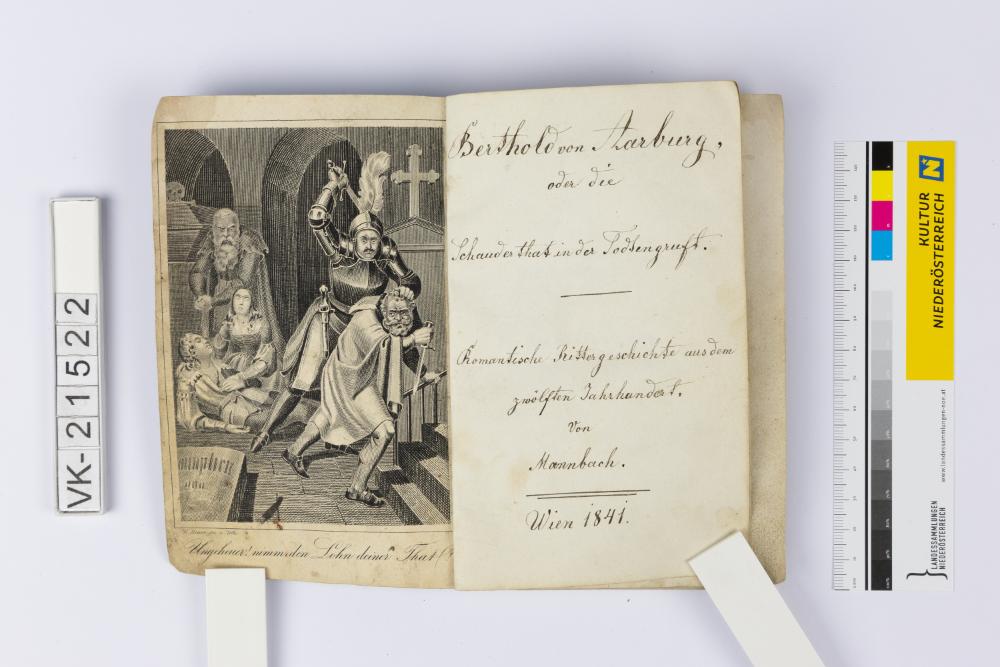 VK-21522
Ungeheuer! nimm den Lohn deiner That!
Berthold von Aarburg,
oder die
Schauderthat in der Todtengruft.
Romantische Rittergeschichte aus dem
zwölften Jahrhundert.
Von
Mannbach.
Wien 1841.
KULTUR
NIEDERÖSTERREICH
N
www.landessammlungen-noe.at
LANDESSAMMLUNGEN
NIEDERÖSTERREICH